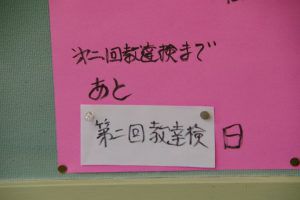 第二回教室検まで
あと
第二回教室検 日